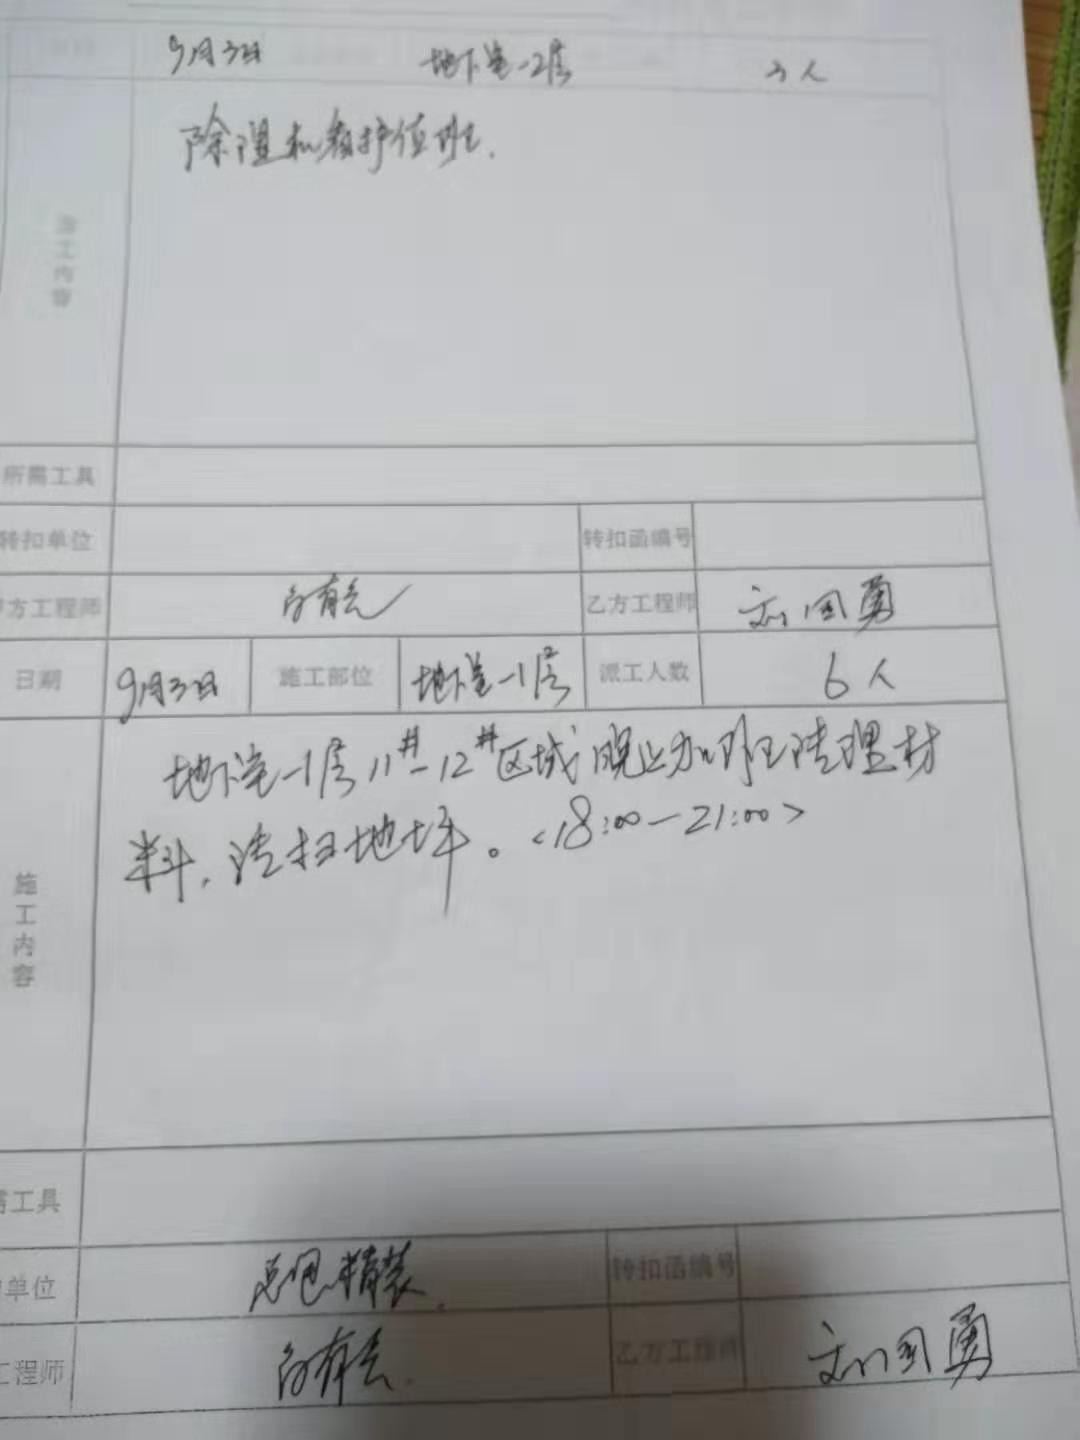 9月3日 地下室-2层 3人
除湿机看护值班.
施工内容
所需工具
转扣单位 转扣函编号
方工程师 乙方工程师 刘国勇
日期 9月3日 施工部位 地下室-1层 派工人数 6人
地下室-1层11#-12#区域晚上加班清理材
料,清扫地坪。<18:00-21:00>
施工内容
需工具
单位 总包精装. 转扣函编号
工程师 乙方工程师 刘国勇